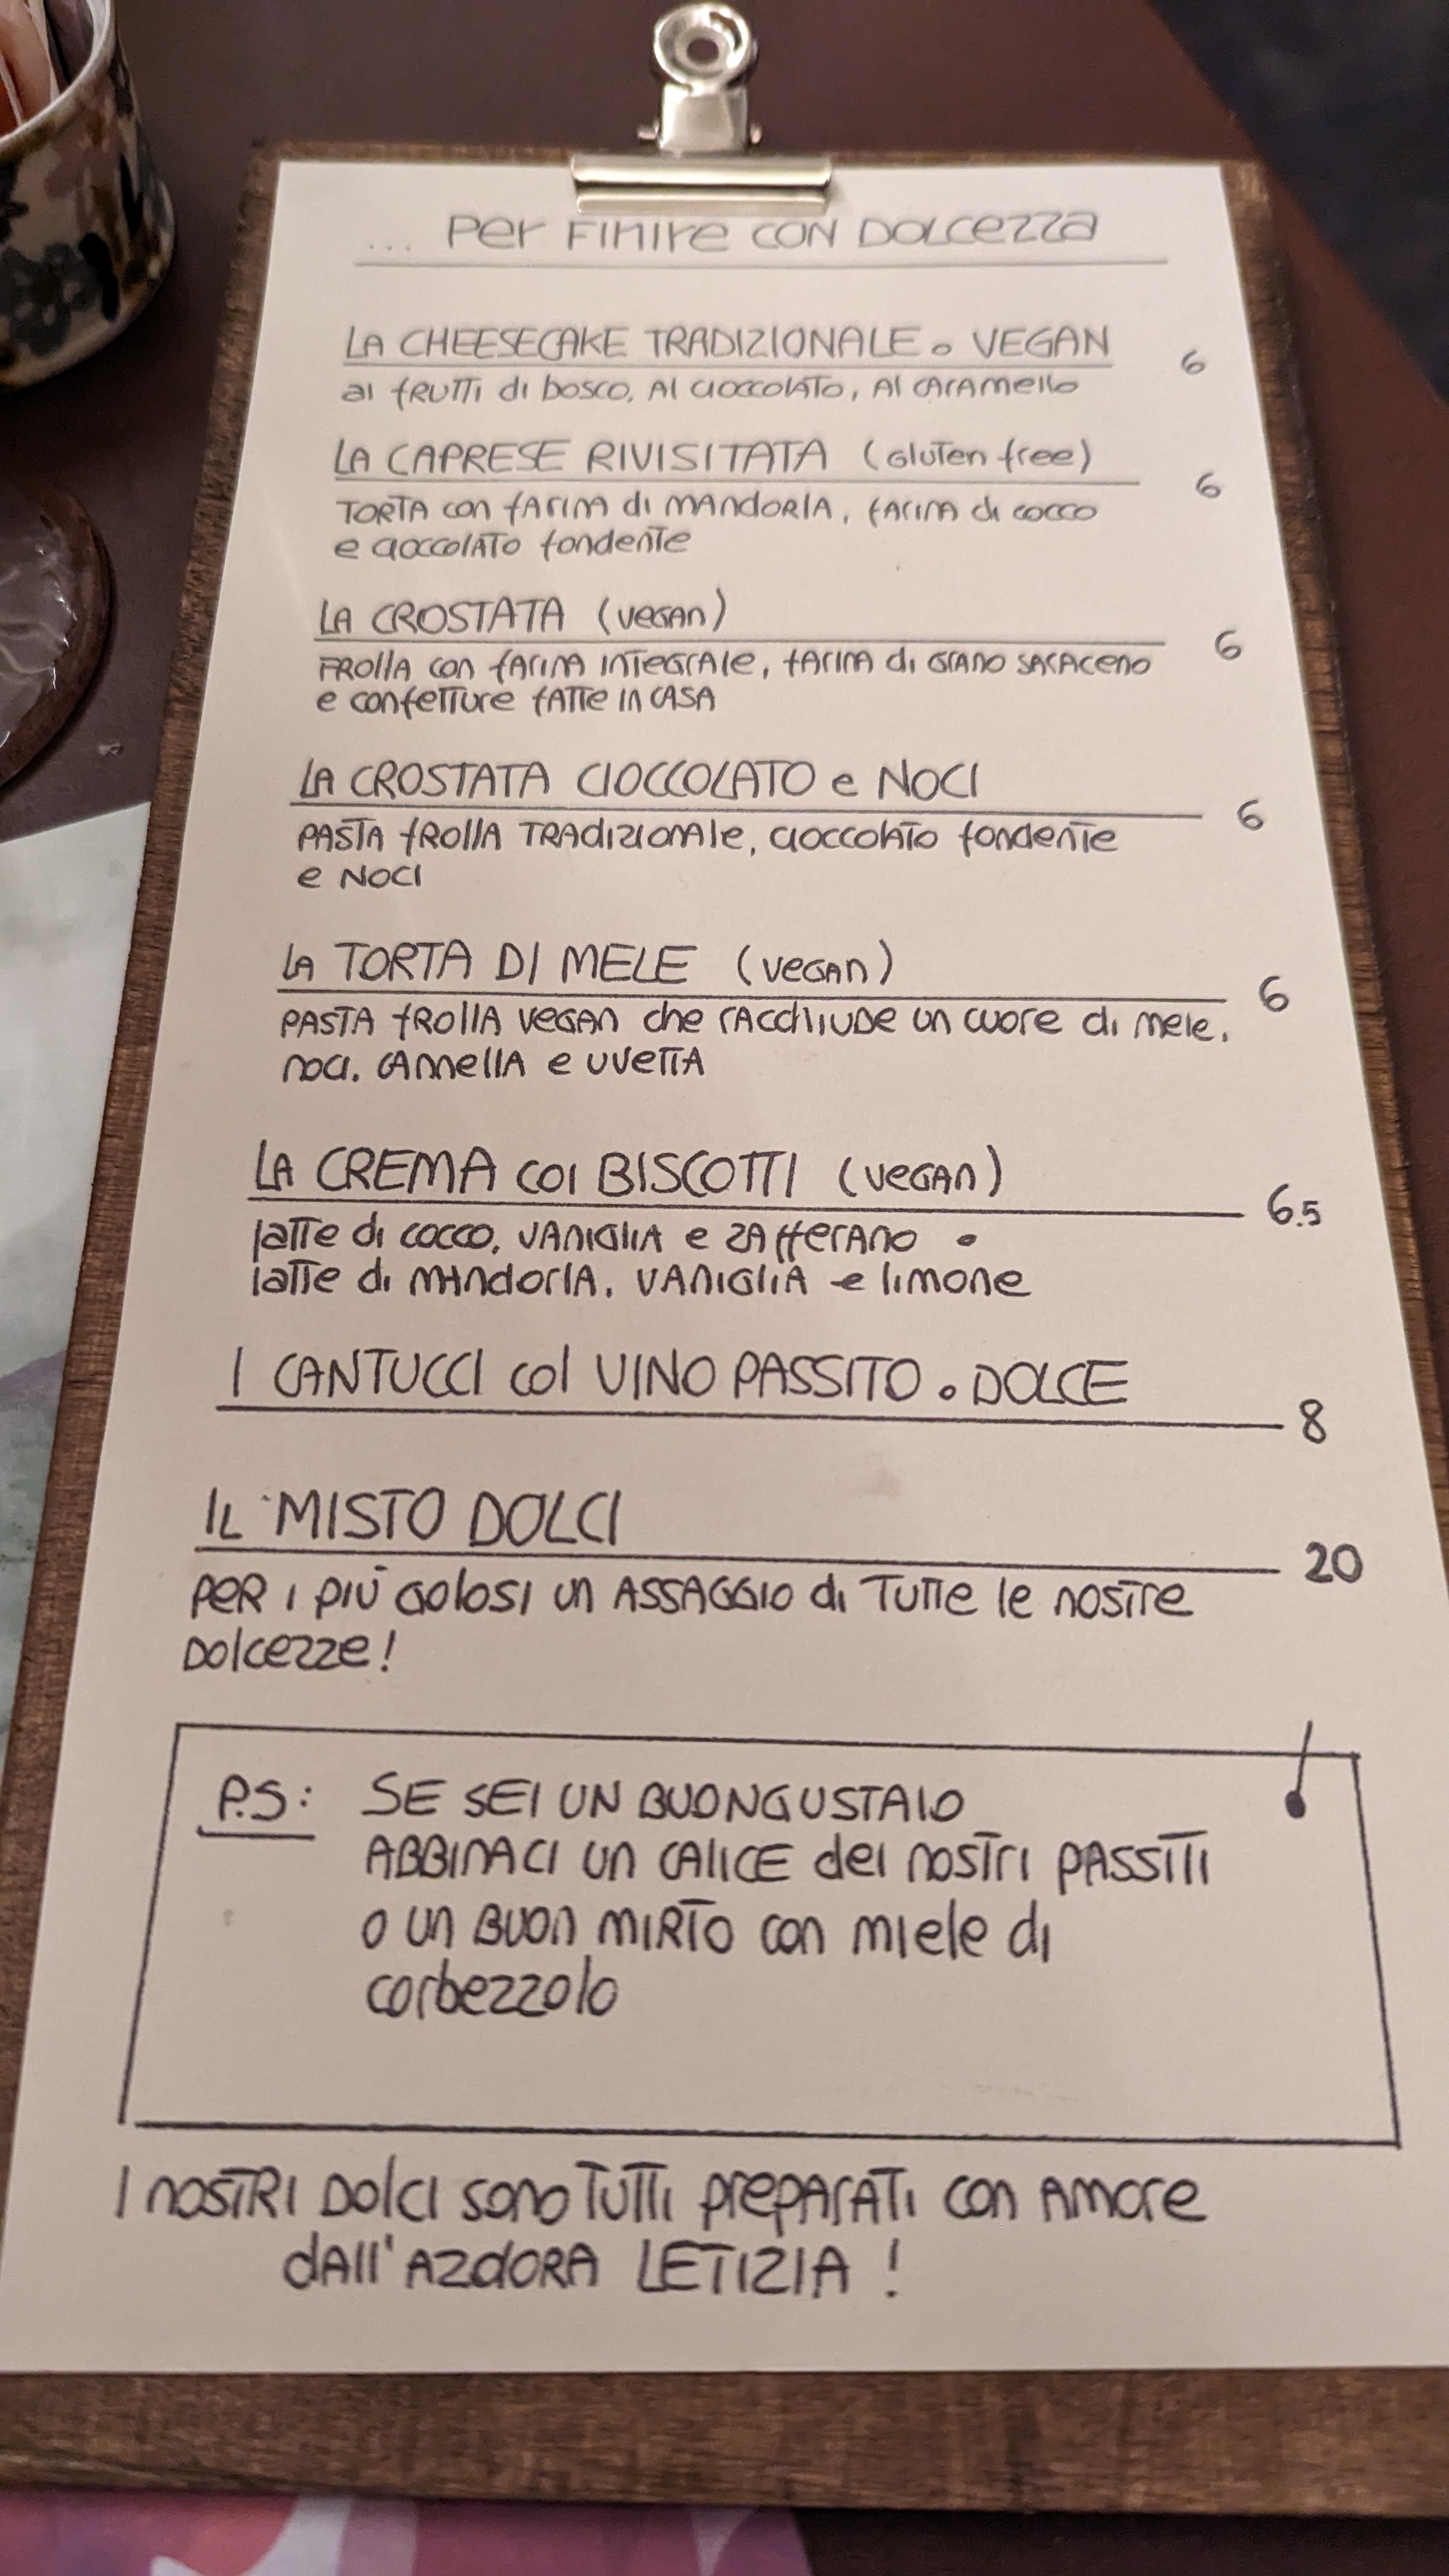 ... Per Finire con Dolcezza
LA CHEESECAKE TRADIZIONALE o VEGAN
ai frutti di bosco, al cioccolato, al caramello
6
LA CAPRESE RIVISITATA (Gluten free)
6
TORTA con farina di mandorla, farina di cocco
e cioccolato fondente
LA CROSTATA (vegan)
6
Frolla con farina integrale, farina di grano saraceno
e confetture fatte in casa
LA CROSTATA CIOCCOLATO e NOCI
6
Pasta frolla tradizionale, cioccolato fondente
e noci
LA TORTA DI MELE (vegan)
6
Pasta frolla vegan che racchiude un cuore di mele,
noci, cannella e uvetta
LA CREMA coi BISCOTTI (vegan)
6.5
latte di cocco, vaniglia e zafferano o
latte di mandorla, vaniglia e limone
I CANTUCCI col VINO PASSITO o DOLCE
8
IL MISTO DOLCI
20
Per i più golosi un assaggio di tutte le nostre
dolcezze!
P.S: SE SEI UN BUONGUSTAIO
ABBINACI un calice dei nostri passiti
o un buon mirto con miele di
corbezzolo
I nostri dolci sono tutti preparati con amore
dall'azdora LETIZIA !